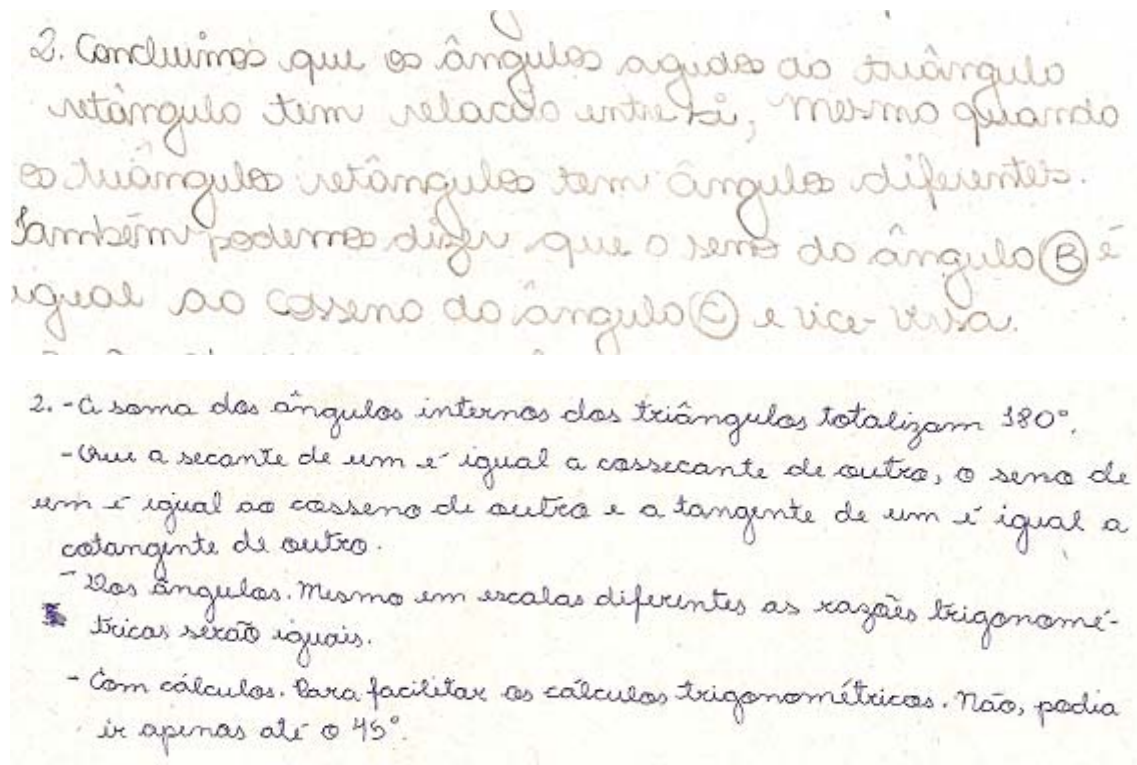 2. Concluimos que os ângulos agudos do triângulo
retângulo tem relacão entre si, mesmo quando
os triângulos retângulos tem ângulos diferentes.
Também podemos dizer que o seno do ângulo B é
igual ao cosseno do ângulo C e vice-versa.
2. - A soma dos ângulos internos dos triângulos totalizam 180°.
- Que a secante de um é igual a cossecante de outro, o seno de
um é igual ao cosseno de outro e a tangente de um é igual a
cotangente de outro.
- Dos ângulos. Mesmo em escalas diferentes as razões trigonomé-
tricas serão iguais.
- Com cálculos. Para facilitar os cálculos trigonométricos. Não, podia
ir apenas até o 45°.